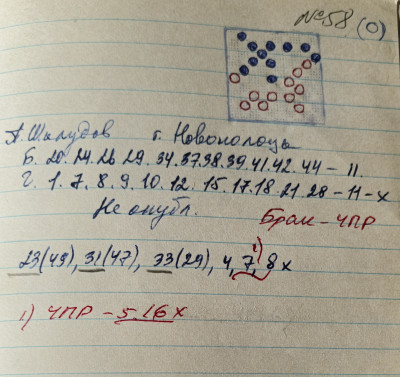 №58 (0)
А. Шалудов г. Новополоцк
Б. 20. 24. 26. 29. 34. 37. 38. 39. 41. 42. 44 – 11.
Ч. 1. 7. 8. 9. 10. 12. 15. 17. 18. 21. 28 – 11 – х
Не опубл.
Брак – ЧПР
23(49), 31(47), 33(29), 4, 7, 8 х
1)
1) ЧПР – 5.16 х